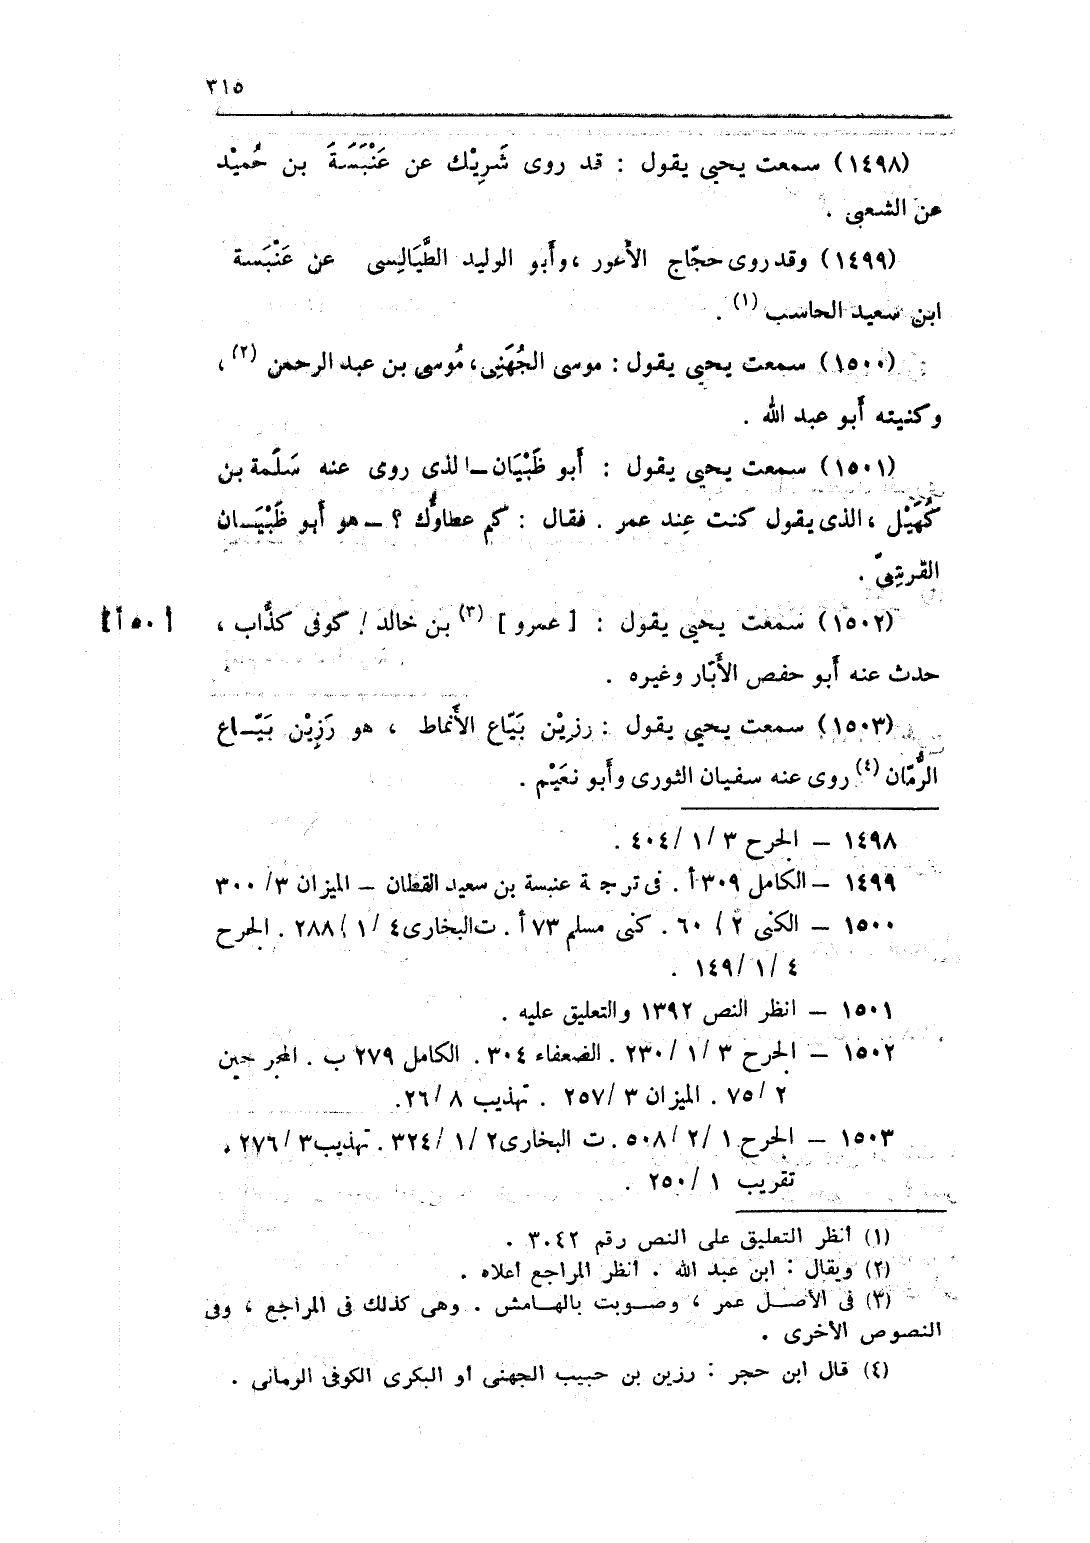 ٣١٥
(١٤٩٨) سمعت يحيى يقول : قد روى شَرِيْك عن عَنْبَسَةَ بن حُميْد
عن الشعبى .
(١٤٩٩) وقد روى حجّاج الأَعور ، وأَبو الوليد الطَّيَالِسى عن عَنْبَسة
ابن سعيد الحاسب (١) .
(١٥٠٠) سمعت يحيى يقول : موسى الجُهَنِى، مُوسى بن عبد الرحمن (٢) ،
وكنيته أَبو عبد الله .
(١٥٠١) سمعت يحيى يقول : أَبو ظَبْيَان ــ الذى روى عنه سَلَمة بن
كُهَيْل ، الذى يقول كنت عِند عمر . فقال : كم عطاوُك ؟ ــ هو أَبو ظَبْيَــان
القرتِىّ .
(١٥٠٢) سَمعت يحيى يقول : [ عمرو ] (٣) بن خالد / كوفى كذَّاب ، [٥٠ أ]
حدث عنه أَبو حفص الأَبّار وغيره .
(١٥٠٣) سمعت يحيى يقول : رزيْن بَيّاع الأَنماط ، هو رَزِيْن بَيّــاع
الرُّمّان (٤) روى عنه سفيان الثورى وأَبو نعَيْم .
١٤٩٨ – الجرح ٣ /١ /٤٠٤ .
١٤٩٩ – الكامل ٣٠٩ أ . فى ترجمة عنبسة بن سعيد القطان – الميزان ٣ /٣٠٠
١٥٠٠ – الكنى ٢ / ٦٠ . كنى مسلم ٧٣ أ . ت البخارى ٤ /١ /٢٨٨ . الجرح
٤ /١ /١٤٩ .
١٥٠١ – انظر النص ١٣٩٢ والتعليق عليه .
١٥٠٢ – الجرح ٣ /١ /٢٣٠ . الضعفاء ٣٠٤ . الكامل ٢٧٩ ب . المجروحين
٢ /٧٥ . الميزان ٣ /٢٥٧ . تهذيب ٨ /٢٦ .
١٥٠٣ – الجرح ١ /٢ /٥٠٨ . ت البخارى ٢ /١ /٣٢٤ . تهذيب ٣ /٢٧٦ .
تقريب ١ /٢٥٠ .
(١) أنظر التعليق على النص رقم ٣٠٤٢ .
(٢) ويقال : ابن عبد الله . أنظر المراجع أعلاه .
(٣) فى الأصــل عمر ، وصــوبت بالهــامش . وهى كذلك فى المراجع ، وفى
النصوص الأخرى .
(٤) قال ابن حجر : رزين بن حبيب الجهنى أو البكرى الكوفى الرمانى .